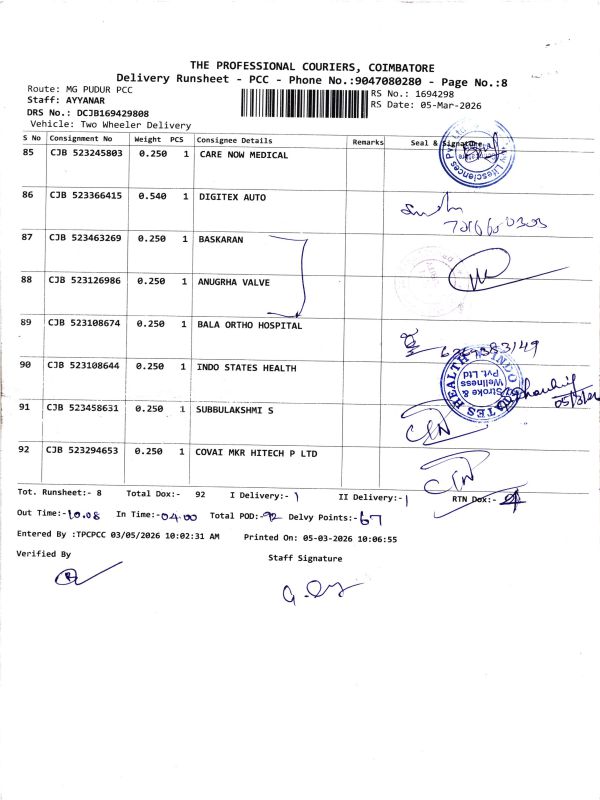 THE PROFESSIONAL COURIERS, COIMBATORE
Delivery Runsheet - PCC - Phone No.:9047080280 - Page No.:8
Route: MG PUDUR PCC
RS No.: 1694298
Staff: AYYANAR
RS Date: 05-Mar-2026
DRS No.: DCJB169429808
Vehicle: Two Wheeler Delivery
S No Consignment No Weight PCS Consignee Details Remarks Seal & Signature
85 CJB 523245803 0.250 1 CARE NOW MEDICAL
Lifesciences Pvt
86 CJB 523366415 0.540 1 DIGITEX AUTO
87 CJB 523463269 0.250 1 BASKARAN
88 CJB 523126986 0.250 1 ANUGRHA VALVE
89 CJB 523108674 0.250 1 BALA ORTHO HOSPITAL
90 CJB 523108644 0.250 1 INDO STATES HEALTH
INDO STATES HEALTH
Stroke &
Wellness
Pvt. Ltd
05/3/26
91 CJB 523458631 0.250 1 SUBBULAKSHMI S
92 CJB 523294653 0.250 1 COVAI MKR HITECH P LTD
Tot. Runsheet:- 8 Total Dox:- 92 I Delivery:- 1 II Delivery:- 1 RTN Dox:-
Out Time:- 10.08 In Time:- 04.00 Total POD:- 92 Delvy Points:- 67
Entered By :TPCPCC 03/05/2026 10:02:31 AM Printed On: 05-03-2026 10:06:55
Verified By Staff Signature